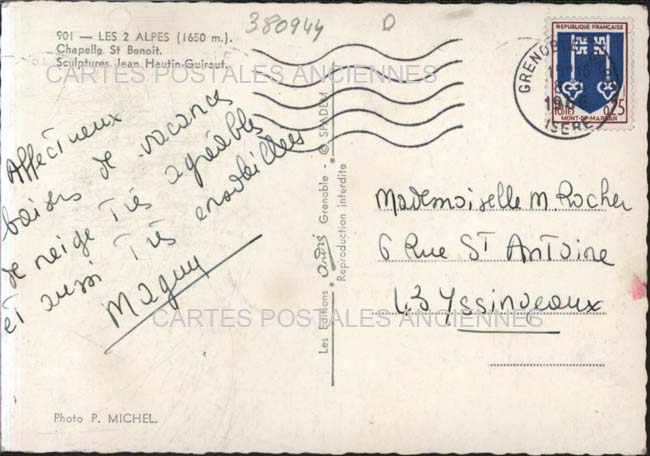 380944 D
901 — LES 2 ALPES (1650 m.).
Chapelle St Benoit.
Sculptures Jean Hautin-Guiraut.
CARTES POSTALES ANCIENNES
Affectueux
baisers de vacances
de neige très agréables
et aussi très ensoleillées
Maguy
Photo P. MICHEL.
Les Editions André Grenoble - © SPADEM
Reproduction interdite
REPUBLIQUE FRANÇAISE
POSTES
0,25
MONT-DE-MARSAN
GRENOBLE
ISERE
Mademoiselle M. Rocher
6 Rue St Antoine
43 Yssingeaux
CARTES POSTALES ANCIENNES